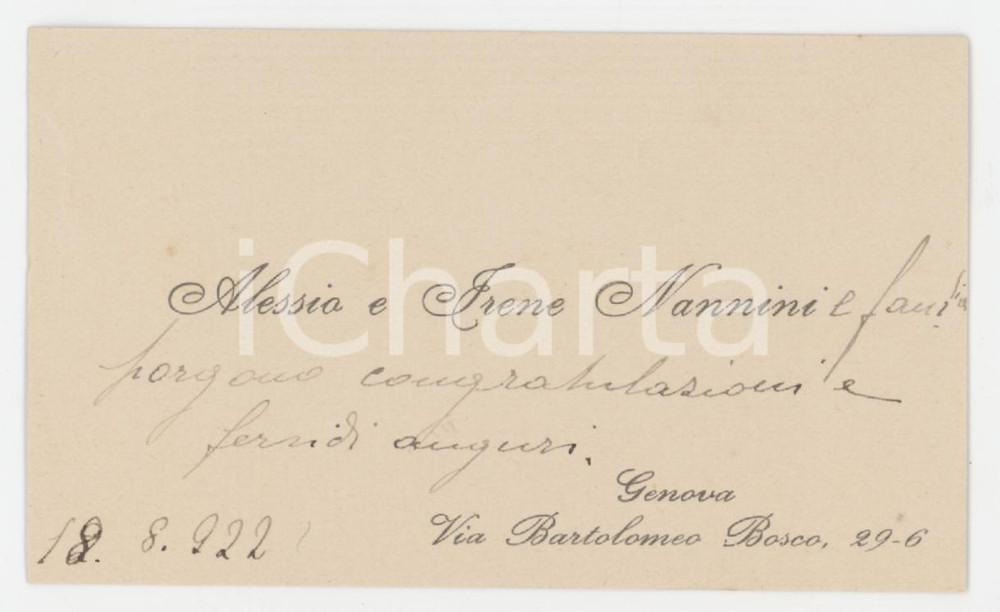 iCharta
Alessio e Irene Nannini e famiglia
porgono congratulazioni e
fervidi auguri.
Genova
Via Bartolomeo Bosco, 29-6
18. 8. 922